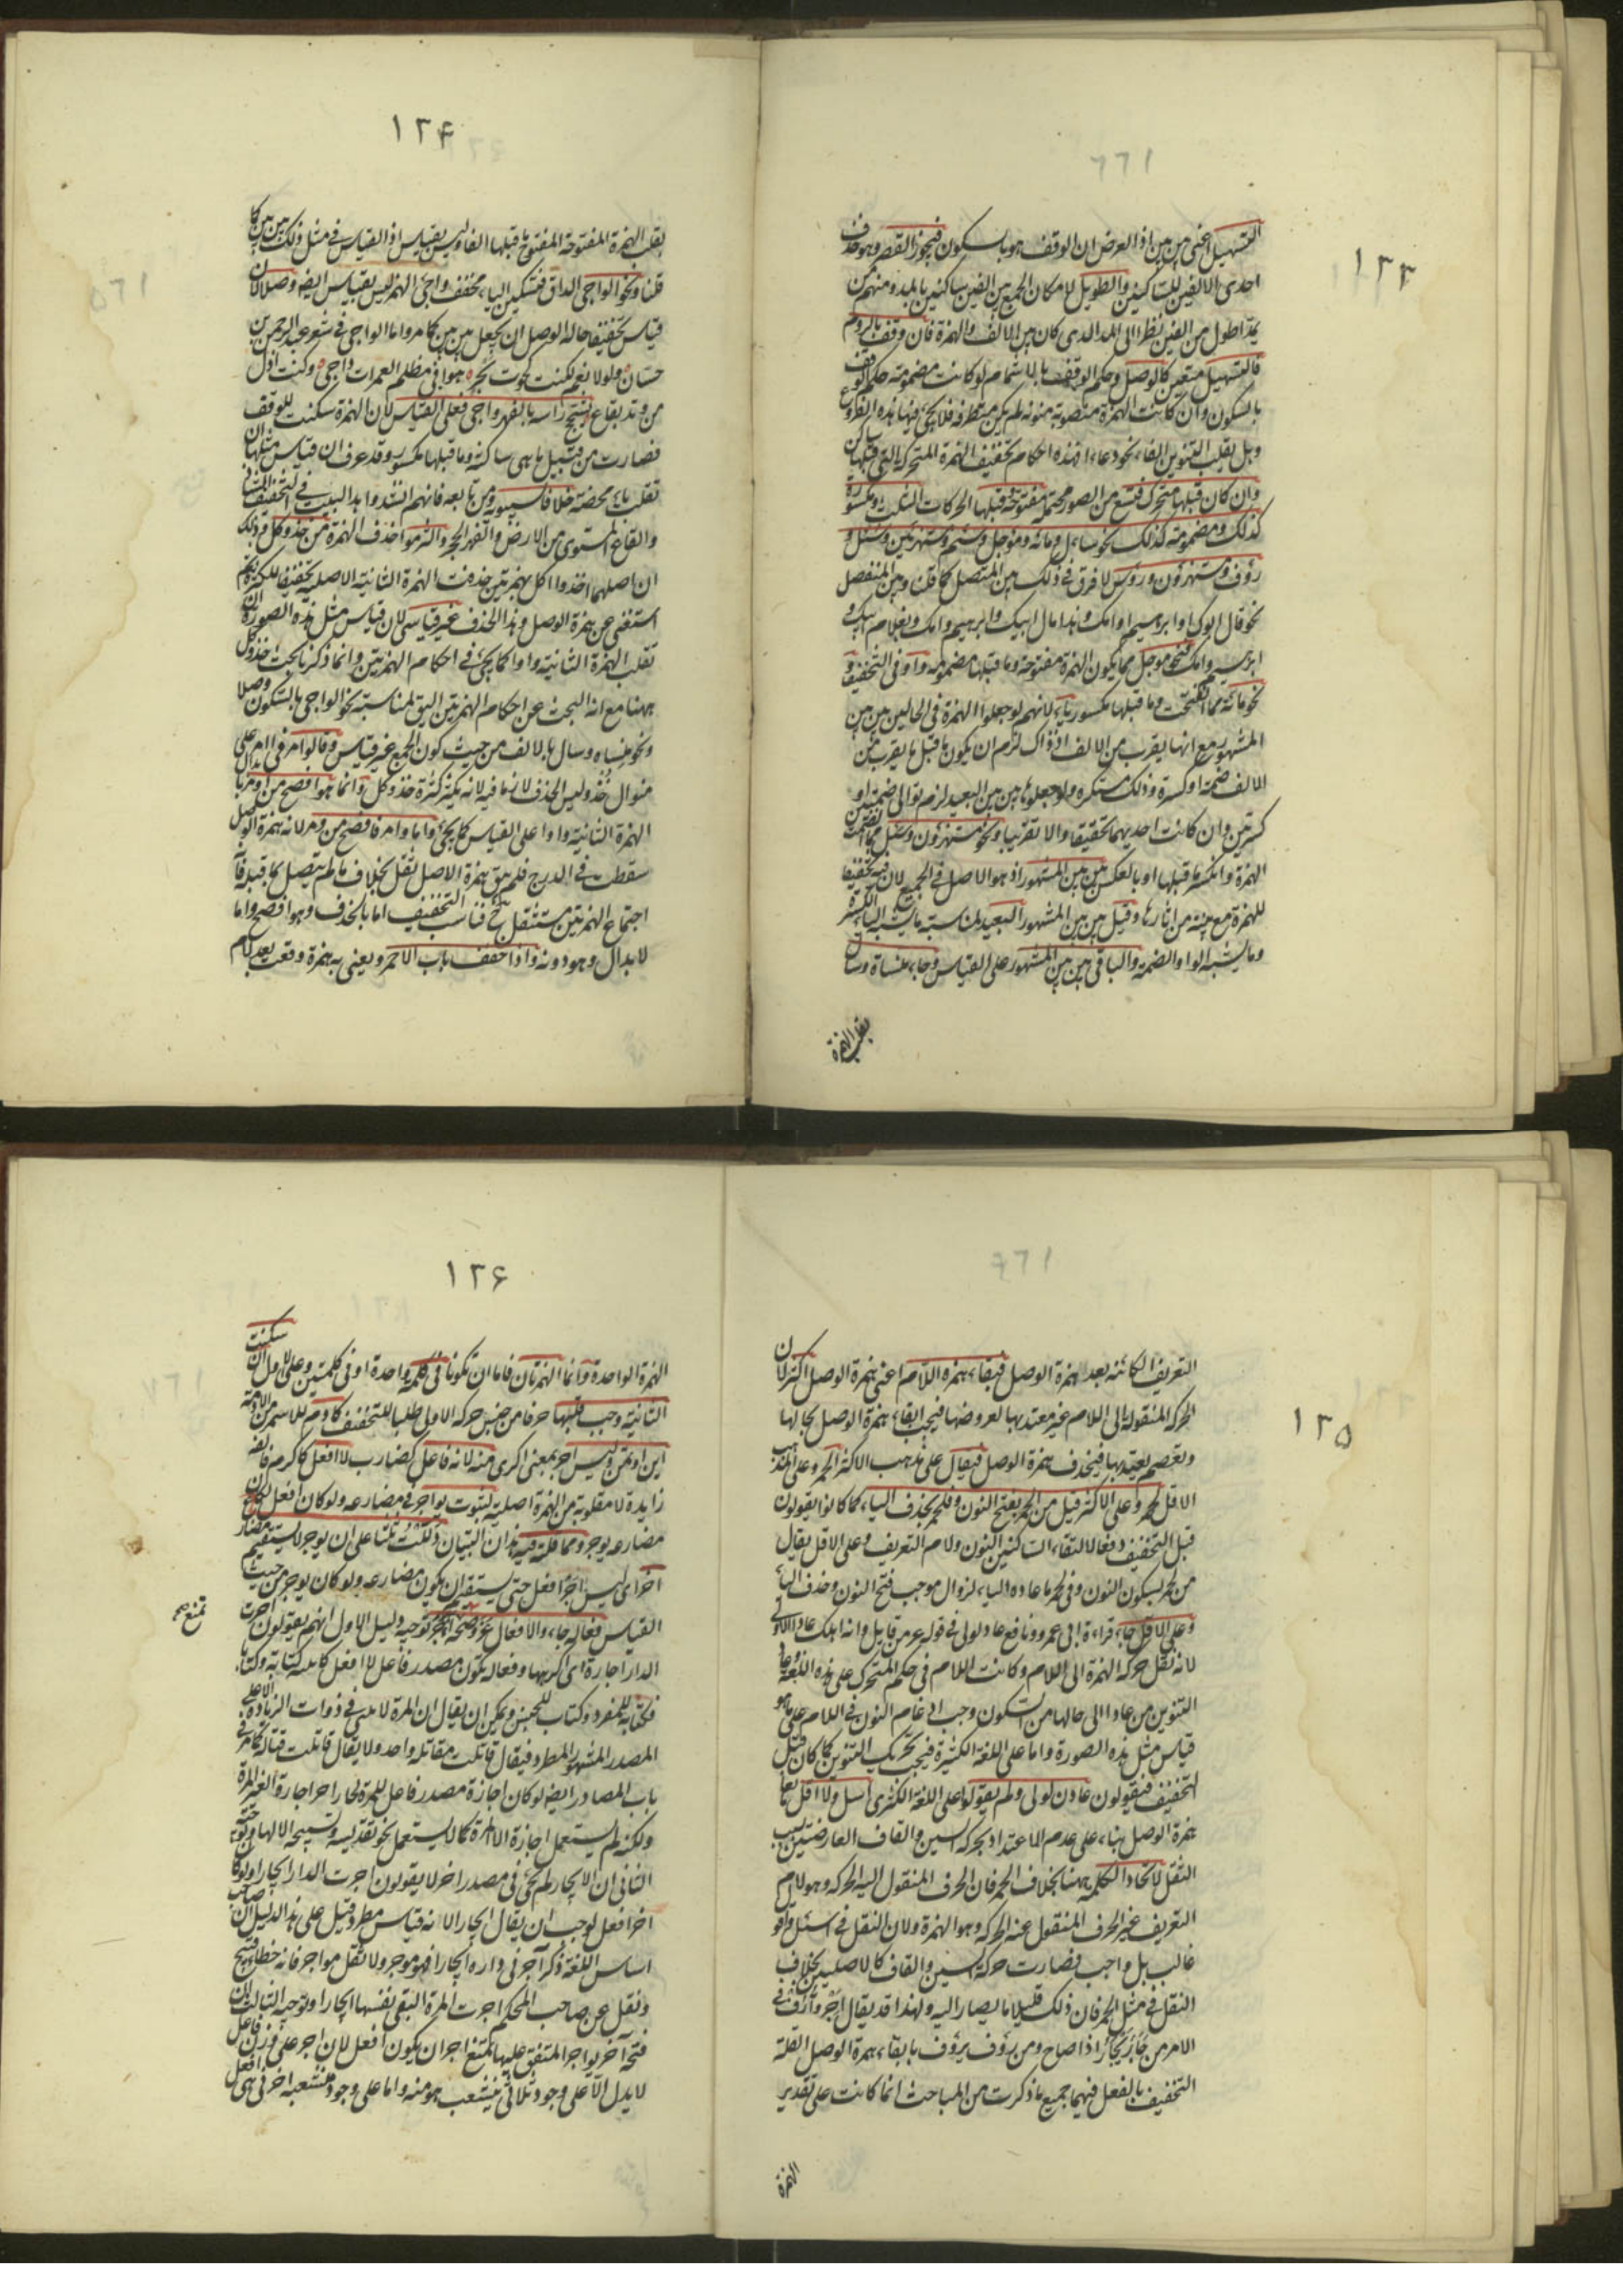 ١٢٣
التسهيل اعنى بين بين اذ الغرض ان الوقف هو بالسكون فيجوز القصر وهو حذف
احدى الالفين للساكنين والطويل لامكان الجمع بين الفين ساكنين بالمد ومنهم من
يمد اطول من الفين نظرا الى المد الذى كان بين الالف والهمزة فان وقف بالروم
فالتسهيل متعين كالوصل وحكم الوقف بالاشمام لو كانت مضمومة حكم الوقف
بالسكون وان كانت الهمزة منصوبة منونة لم يكن متطرفة فلا يجئ فيها هذه الفروع
وبل يقلب التنوين الفا نحو دعاءا فهذه احكام تخفيف الهمزة المتحركة التى قبلها ساكن
وان كان قبلها متحرك فتسع من الصور محتملة مفتوحة وقبلها الحركات الثلث ومكسورة
كذلك ومضمومة كذلك نحو سأل ومائة ومؤجل وسئم ومستهزئين وسئل و
رؤف ومستهزؤن ورؤس لا فرق فى ذلك بين المتصل كما قلنا وبين المنفصل
نحو قال ابوك او ابراهيم او امك وهذا مال ابيك وابراهيم وامك وبغلام ابيك و
ابراهيم وامك فنحو موجل مما يكون الهمزة مفتوحة وما قبلها مضمومة واو فى التخفيف و
نحو مائة مما انفتحت وما قبلها مكسور ياء لانهم لو جعلوا الهمزة فى الحالين بين بين
المشهور مع انها يقرب من الالف اذ ذاك لزم ان يكون ما قبل ما يقرب من
الالف ضمة او كسرة وذلك مستكره ولو جعلوها بين بين البعيد لزم توالى ضمتين او
كسرتين وان كانت احديهما تحقيقا والا تقريبا ونحو مستهزؤن وسئل مما انضمت
الهمزة وانكسر ما قبلها او بالعكس بين بين المشهور اذ هو الاصل فى الجميع لان فيه تخفيفا
للهمزة مع بينة من اثارها وقيل بين بين المشهور البعيد لمناسبة ما يشبه الياء الكسرة
وما يشبه الواو الضمة والباقى بين بين المشهور على القياس وجاء منساة وسال
بقلب الهمزة
١٢۴
بقلب الهمزة المفتوحة المفتوح ما قبلها الفا وليس بقياس اذ القياس فى مثل ذلك بين بين كما
قلنا ونحو الواجى الداق فتسكين الياء مخفف واجئ الهمز ليس بقياس ايضا وصلا لان
قياس تخفيفها حالة الوصل ان يجعل بين بين كما مر واما الواجى فى شعر عبد الرحمن بن
حسان ولولاهم لكنت كحوت بحر هوى فى مظلم الغمرات داجى وكنت اذل
من وتد بقاع يشجج راسه بالفهر واجى فعلى القياس لان الهمزة سكنت للوقف
فصارت من قبيل ما هى ساكنة وما قبلها مكسور وقد عرف ان قياس مثلها ان
تقلب ياء محضة خلافا لسيبويه ومن تابعه فانهم انشدوا هذا البيت فى التخفيف الشاذ
والقاع المستوى من الارض والفهر الحجر والتزموا حذف الهمزة من خذ وكل وذلك
ان اصلهما اءخذ واءكل بهمزتين حذفت الهمزة الثانية الاصلية تخفيفا للكثرة ثم
استغنى عن همزة الوصل وهذا الحذف غير قياسى لان قياس مثل هذه الصورة ان
تقلب الهمزة الثانية واوا كما يجئ فى احكام الهمزتين وانما ذكرنا بحث خذ وكل
ههنا مع انه البحث عن احكام الهمزتين اليق لمناسبة نحو الواجى بالسكون وصلا
ونحو منساه وسال بالالف من حيث كون الجميع غير قياس وقالوا مر فى امر على
منوال خذ وليس الحذف لازما فيه لانه لم يكثر كثرة خذ وكل وانما هو افصح من اومر بابدال
الهمزة الثانية واوا على القياس كما يجئ واما وامر فافصح من ومر لانه همزة الوصل
سقطت فى الدرج فلم يبق همزة الاصل ثقل بخلاف ما لم يتصل بما قبله فان
اجتماع الهمزتين مستثقل فناسب التخفيف اما بالحذف وهو افصح واما
لابدال وهو دونه واذا خفف باب الاحمر ويعنى به همزة وقعت بعد لام
١٢۵
التعريف الكائنة بعد همزة الوصل فبقاء همزة اللام اعنى همزة الوصل اكثر لان
الحركة المنقولة الى اللام غير معتد بها لعروضها فيجب ابقاء همزة الوصل بحالها
وبعضهم يعتد بها فيحذف همزة الوصل فيقال على مذهب الاكثر الحمر وعلى المذهب
الاقل لحمر وعلى الاكثر قيل من الحمر بفتح النون وفلحمر بحذف الياء كما كانوا يقولون
قبل التخفيف دفعا لالتقاء الساكنين النون ولام التعريف وعلى الاقل يقال
من لحمر بسكون النون وفى لحمر باعادة الياء لزوال موجب فتح النون وحذف الياء
وعلى الاقل جاء قراءة ابى عمرو ونافع عاد لولى فى قوله عز من قايل وانه اهلك عادا الاولى
لانه نقل حركة الهمزة الى اللام وكانت اللام فى حكم المتحرك على هذه اللغة وعاد
التنوين من عادا الى حالها من السكون وجب ادغام النون فى اللام على ما هو
قياس مثل هذه الصورة واما على اللغة الكثيرة فيجب تحريك التنوين كما كان قبل
التخفيف فيقولون عادن لولى ولم يقولوا على اللغة الكثرى اسل ولا اقل بقاء
همزة الوصل بناء على عدم الاعتداد بحركة السين والقاف العارضتين بسبب
النقل لاتحاد الكلمة هنا بخلاف الحمر فان الحرف المنقول اليه الحركة وهو لام
التعريف غير الحرف المنقول عنه الحركة وهو الهمزة ولان النقل فى اسئل واقو
غالب بل واجب فصارت حركة السين والقاف كالاصلية بخلاف
النقل فى مثل الحمر فان ذلك قليلا ما يصار اليه ولهذا قد يقال اجر وارف فى
الامر من جأر يجأر اذا صاح ومن رؤف يرؤف بابقاء همزة الوصل لقلة
التخفيف بالفعل فيهما جميع ما ذكرت من المباحث انما كانت على تقدير
الهمزة
١٢۶
الهمزة الواحدة وانما الهمزتان فاما ان تكونا فى كلمة واحدة او فى كلمتين وعلى الاول ان سكنت
الثانية وجب قلبها حرفا من جنس حركة الاولى طلبا للتخفيف كادم للاسمر من الادمة
ايت واوتمن وليس اجر بمعنى اكرى منه لانه فاعل كضارب لا افعل كاكرم فالفه
زايدة لا مقلوبة من الهمزة اصلية لثبوت يواجر فى مضارعه ولو كان افعل لكان
مضارعه يوجر ومما قلته فيه هذان البيتان دللت ثلثا على ان يوجر لا يستقيم مضار
اجر اى ليس اجر افعل حتى يستقيم ان يكون مضارعه ولو كان يوجر من حيث
القياس فعالة جاء والافعال عز وصحة اجر توجيه دليل الاول انهم يقولون اجرت
الدار اجارة اى اكريتها وفعالة تكون مصدر فاعل لا افعل كاتبه كتابة وكتابا
فكتابة للمفرد وكتاب للجنس ويمكن ان يقال ان المرة لا يبنى فى ذوات الزيادة الا على
المصدر المشهور المطرد فيقال قاتلت مقاتلة واحدة ولا يقال قاتلت قتالة كما مر فى
باب المصادر ايضا لو كان اجازة مصدر فاعل للمرة لجاز اجر اجارة لغير المرة
ولكنه لم يستعمل اجازة الا للمرة كما لا يستعمل نحو تقديسه وتسبيحة الا لها وتوجيه
الثانى ان الايجار لم يجئ فى مصدر اجر لا يقولون اجرت الدار ايجارا ولو كان
اجر افعل لوجب ان يقال ايجارا لانه قياس مطرد قيل على هذا الدليل ان صاحب
اساس اللغة ذكر آجرنى داره ايجارا فهو موجر ولا تقل مواجر فانه خطا قبيح
ونقل عن صاحب المحكم اجرت المرة البغى نفسها ايجارا وتوجيه الثالث ان
فتحة آجر يواجر المتفق عليها تمنع اجر ان يكون افعل لان اجر على وزن فاعل
لا يدل الا على وجود ثلاثى ينشعب هو منه واما على وجود منشعبة اخرى هى افعل
تمنع صح